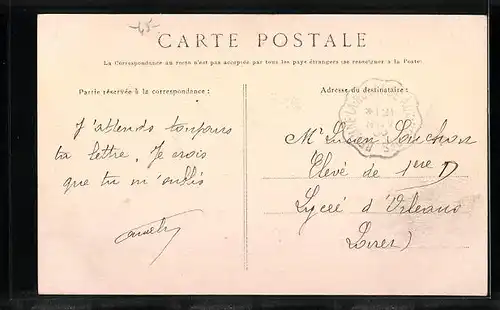 -45-
CARTE POSTALE
La Correspondance au recto n'est pas acceptée par tous les pays étrangers (se renseigner à la Poste)
Partie réservée à la correspondance :
Adresse du destinataire :
J'attends toujours
ta lettre. Je crois
que tu m'oublis
Mr Lucien Souchon
Elevé de 1ère D
Lycée d'Orléans
Loiret)